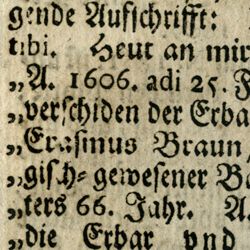 gende Aufschrifft:
tibi. Heut an mir
„A. 1606. adi 25. J
„verschiden der Erba
„Erasmus Braun
„gisch-gewesener Ba
„ters 66. Jahr. A
„die Erbar vnd